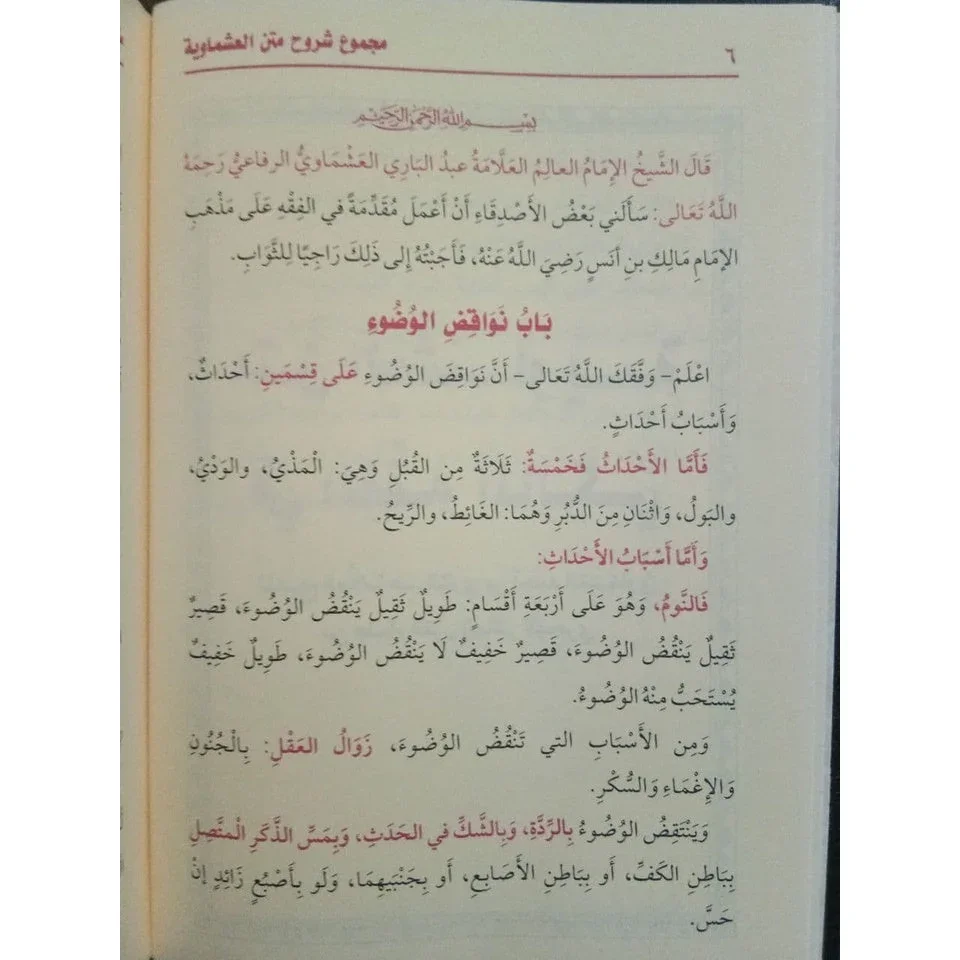 ٦
مجموع شروح متن العشماوية
بِسْمِ اللَّهِ الرَّحْمَنِ الرَّحِيمِ
قَالَ الشَّيخُ الإِمَامُ العالِمُ العَلَّامَةُ عبدُ البَارِي العَشْمَاوِيُّ الرفاعيُّ رَحِمَهُ
اللَّهُ تَعَالى: سَأَلَني بَعْضُ الأَصْدِقَاءِ أَنْ أَعْمَلَ مُقَدِّمَةً في الفِقْهِ عَلَى مَذْهَبِ
الإمَامِ مَالِكِ بنِ أنَسٍ رَضِيَ اللَّهُ عَنْهُ، فَأَجَبْتُهُ إلى ذَلِكَ رَاجِيًا لِلثَّوَابِ.
بَابُ نَوَاقِضِ الوُضُوءِ
اعْلَمْ- وَفَّقَكَ اللَّهُ تَعَالى- أَنَّ نَوَاقِضَ الوُضُوءِ عَلَى قِسْمَينِ: أَحْدَاثٌ،
وَأَسْبَابُ أَحْدَاثٍ.
فَأَمَّا الأَحْدَاثُ فَخَمْسَةٌ: ثَلَاثَةٌ مِن القُبُلِ وَهِيَ: الْمَذْيُ، والوَدْيُ،
والبَولُ، وَاثْنَانِ مِنَ الدُّبُرِ وَهُمَا: الغَائِطُ، والرِّيحُ.
وَأَمَّا أَسْبَابُ الأَحْدَاثِ:
فَالنَّومُ، وَهُوَ عَلَى أَرْبَعَةِ أَقْسَامٍ: طَوِيلٌ ثَقِيلٌ يَنْقُضُ الوُضُوءَ، قَصِيرٌ
ثَقِيلٌ يَنْقُضُ الوُضُوءَ، قَصِيرٌ خَفِيفٌ لَا يَنْقُضُ الوُضُوءَ، طَوِيلٌ خَفِيفٌ
يُسْتَحَبُّ مِنْهُ الوُضُوءُ.
وَمِن الأَسْبَابِ التي تَنْقُضُ الوُضُوءَ، زَوَالُ العَقْلِ: بِالْجُنُونِ
وَالإِغْمَاءِ وَالسُّكْرِ.
وَيَنْتَقِضُ الوُضُوءُ بِالرِّدَّةِ، وَبِالشَّكِّ في الحَدَثِ، وَبِمَسِّ الذَّكَرِ الْمتَّصِلِ
بِبَاطِنِ الكَفِّ، أَو بِبَاطِنِ الأَصَابعِ، أَو بِجَنْبَيهِمَا، وَلَو بِأَصْبُعٍ زَائِدٍ إنْ
حَسَّ.